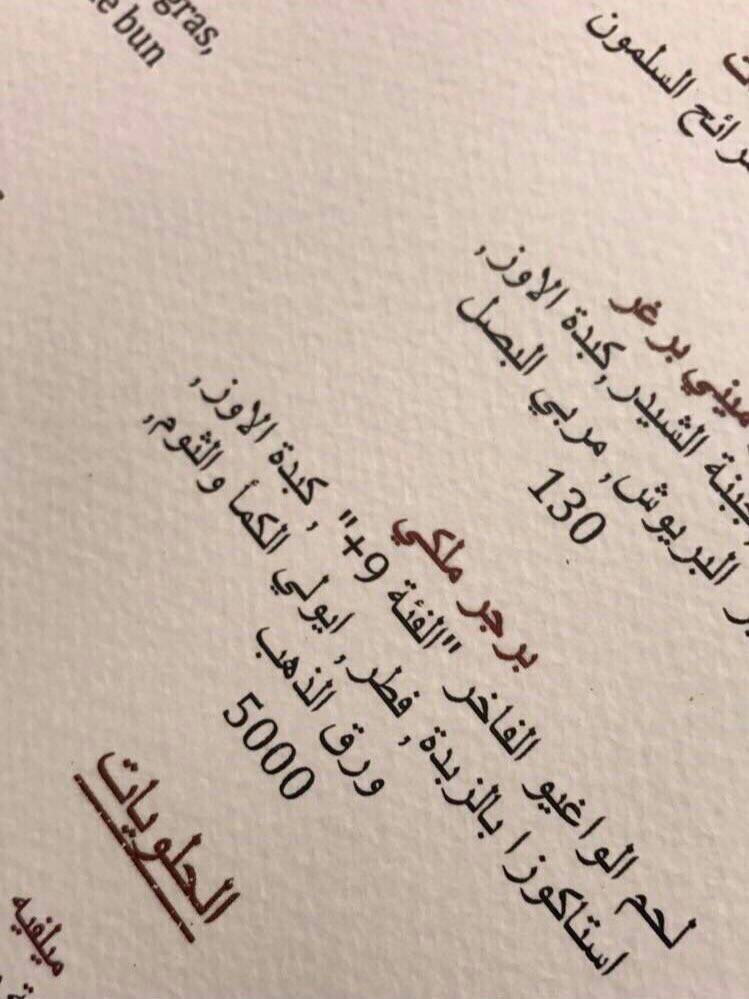 gras,
bun
السلمون
ميني برغر
جبنة الشيدر, كبدة الاوز,
البريوش, مربي البصل
130
برجر ملكي
لحم الواغيو الفاخر "الفئة 9+", كبدة الاوز,
استاكوزا بالزبدة, فطر, ايولي الكمأ والثوم,
ورق الذهب
5000
الحلويات
ميلفيه